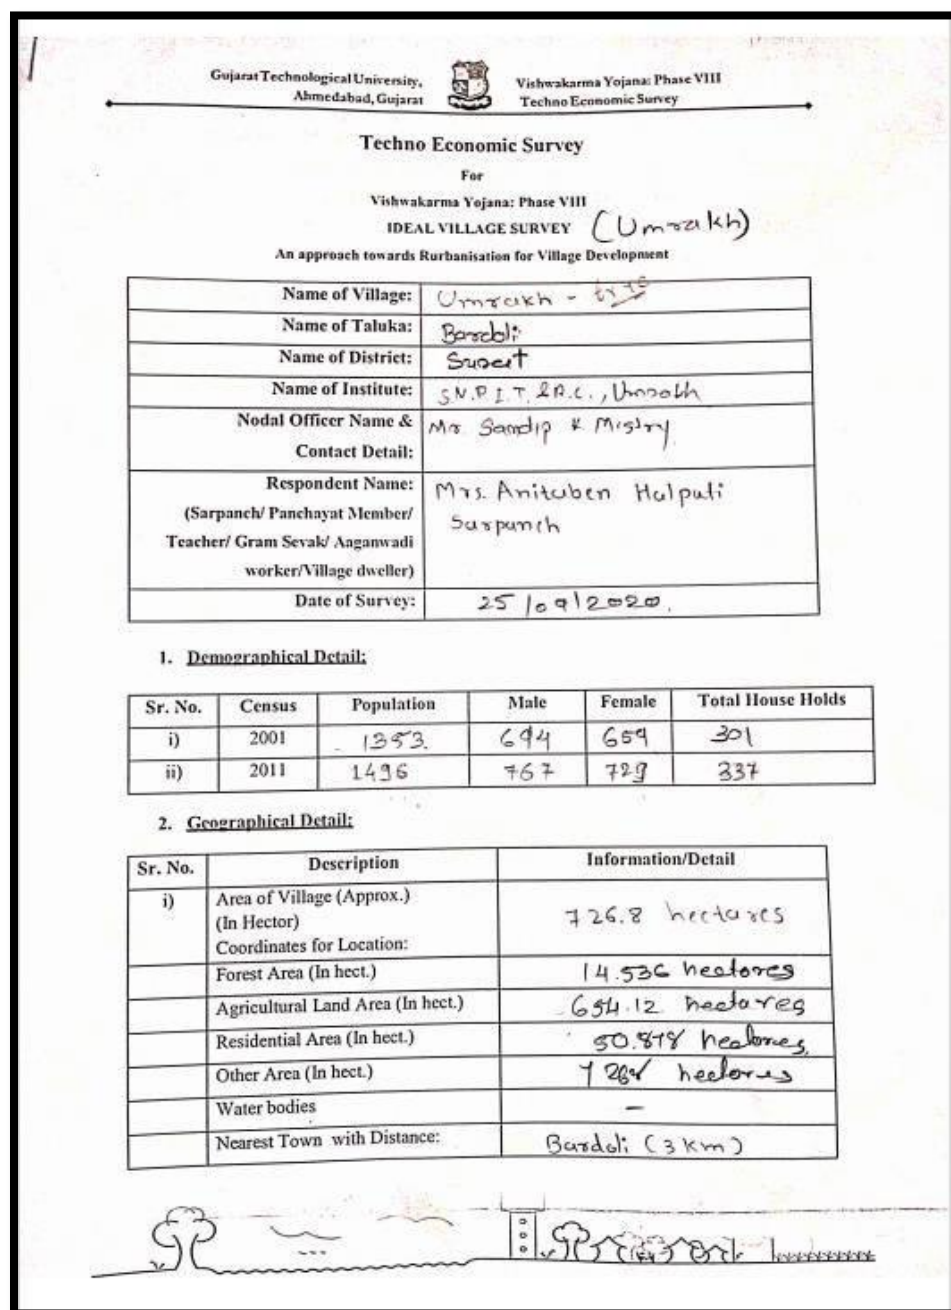 Gujarat Technological University,
Ahmedabad, Gujarat
Vishwakarma Yojana: Phase VIII
Techno Economic Survey
Techno Economic Survey
For
Vishwakarma Yojana: Phase VIII
IDEAL VILLAGE SURVEY (Umrakh)
An approach towards Rurbanisation for Village Development
Name of Village: Umrakh -
Name of Taluka: Bardoli
Name of District: Surat
Name of Institute: S.N.P.I.T. & R.C., Umrakh
Nodal Officer Name & Mr. Sandip K Mistry
Contact Detail:
Respondent Name: Mrs. Anitaben Halpati
(Sarpanch/ Panchayat Member/ Sarpanch
Teacher/ Gram Sevak/ Aaganwadi
worker/Village dweller)
Date of Survey: 25/09/2020.
1. Demographical Detail:
Sr. No. Census Population Male Female Total House Holds
i) 2001 1353 694 659 301
ii) 2011 1496 767 729 337
2. Geographical Detail:
Sr. No. Description Information/Detail
i) Area of Village (Approx.)
(In Hector) 726.8 hectares
Coordinates for Location:
Forest Area (In hect.) 14.536 hectores
Agricultural Land Area (In hect.) 654.12 hectares
Residential Area (In hect.) 50.878 hectores
Other Area (In hect.) hectores
Water bodies -
Nearest Town with Distance: Bardoli (3 Km)